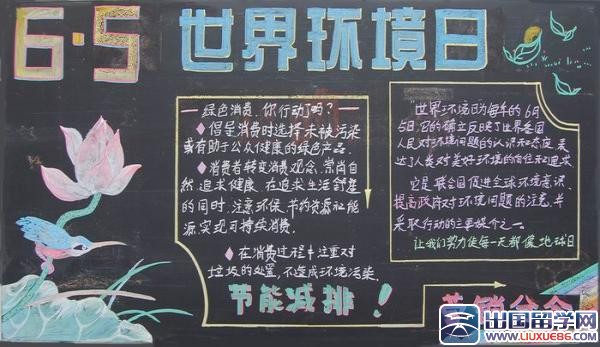 6·5 世界环境日
— 绿色消费,你行动了吗? —
◆倡导消费时选择未被污染
或有助于公众健康的绿色产品
◆消费者转变消费观念,崇尚自
然、追求健康,在追求生活舒适
的同时,注意环保、节约资源和能
源,实现可持续消费.
◆在消费过程中注重对
垃圾的处置,不造成环境污染.
节能减排!
"世界环境日为每年的6月
5日,它的确立反映了世界各国
人民对环境问题的认识和态度,表
达了人类对美好环境的向往和追求
它是联合国促进全球环境意识、
提高政府对环境问题的注意并
采取行动的主要媒介之一.
让我们努力使每一天都像地球日
出国留学网
WWW.LIUXUE86.COM